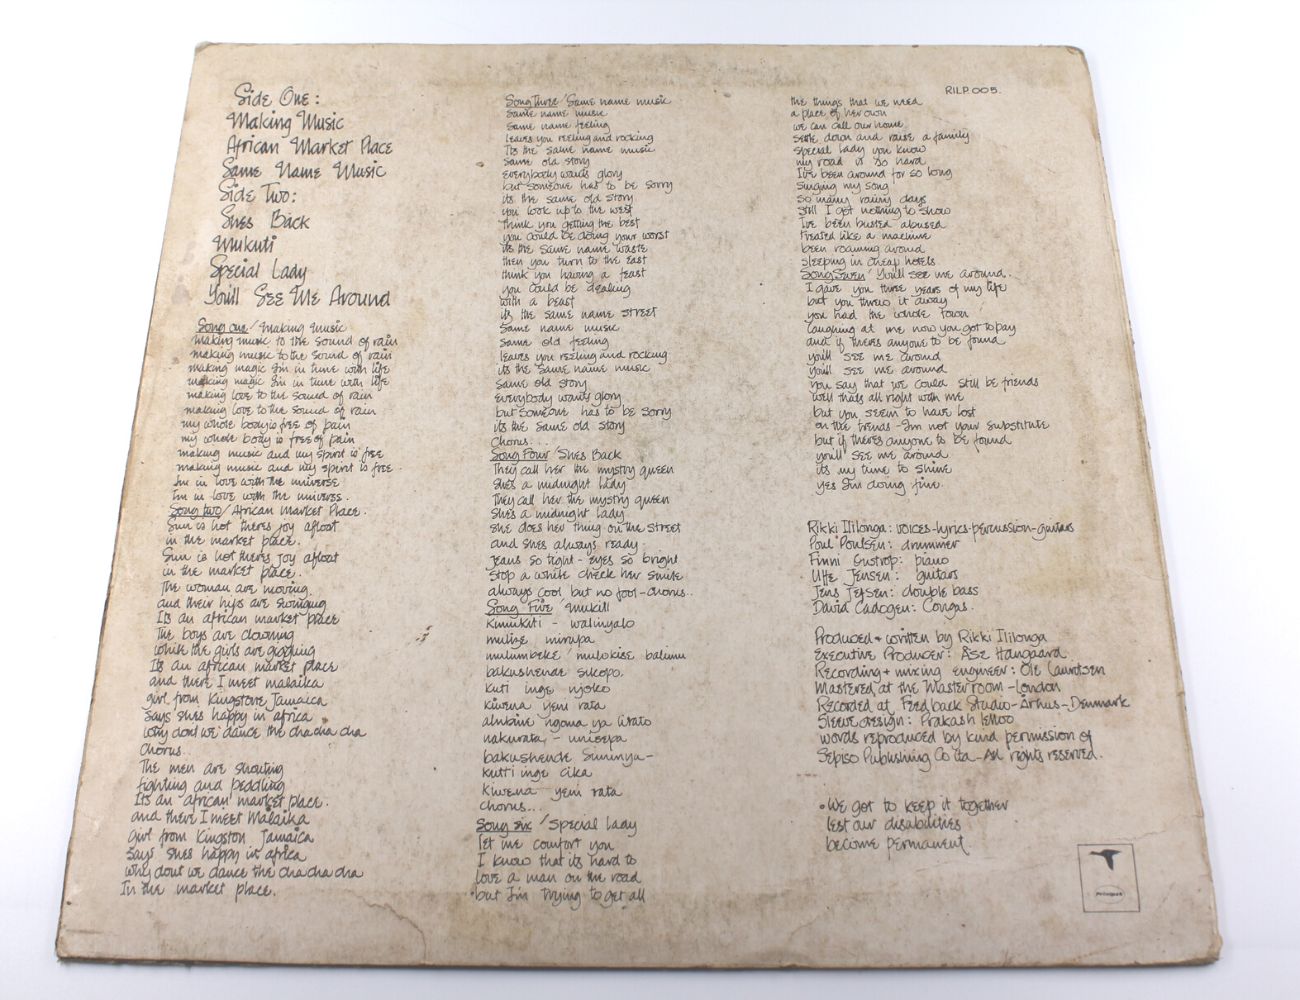 Side One:
Making Music
African Market Place
Same Name Music
Side Two:
Shes Back
Mukuti
Special Lady
You'll See Me Around
Song one/ Making Music
making music to the sound of rain
making music to the sound of rain
making magic I'm in tune with life
making magic I'm in tune with life
making love to the sound of rain
making love to the sound of rain
my whole body is free of pain
my whole body is free of pain
making music and my spirit is free
making music and my spirit is free.
I'm in love with the universe
I'm in love with the universe.
Song two/ African Market Place.
Sun is hot theres joy afloat
in the market place.
Sun is hot theres joy afloat
in the market place.
The woman are moving
and their hips are swinging
Its an african market place
The boys are clowning
while the girls are giggling
Its an african market place
and there I meet malaika
girl from Kingstove Jamaica
says shes happy in africa
why dont we dance the cha cha cha
Chorus..
The men are shouting
fighting and peddling
Its an african market place.
and there I meet Malaika
girl from Kingston Jamaica
says shes happy in africa
why dont we dance the cha cha cha
In the market place.
Song Three/ Same name music
Same name music
Same name feeling
leaves you reeling and rocking
Its the same name music
same old story
everybody wants glory
but someone has to be sorry
its the same old story
you look up to the west
think you getting the best
you could be doing your worst
its the same name waste
then you turn to the east
think you having a feast
you could be dealing
with a beast
its the same name street
Same name music
Same old feeling
leaves you reeling and rocking
its the same name music
same old story
everybody wants glory
but someone has to be sorry
its the same old story
Chorus...
Song Four/ Shes Back
They call her the mystry queen
She's a midnight lady
They call her the mystry queen
She's a midnight lady
she does her thing on the street
and shes always ready.
jeans so tight - eyes so bright
stop a while check her smile
always cool but no fool-chorus..
Song Five/ Mukill
Kumukuti - walinyalo
mulize mirapa
mulumbeke' mulokise balimu
bakushende sikopo.
kuti inge njoko
kiwena yeni rata
ngoma ya lirato
nakurata, - unicepa
bakushende Sininya-
kutti inge cika
kiwena yeni rata
chorus...
Song six/ Special Lady
let me comfort you
I know that its hard to
love a man on the road
but I'm trying to get all
RILP.005.
the things that we need
a place of her own
we can call our home
settle down and raise a family
special lady you know
my road is so hard
I've been around for so long
singing my song
so many rainy days
still I got nothing to show
I've been busted abused
treated like a machine
been roaming around
sleeping in cheap hotels
Song Seven/ You'll see me around.
I gave you three years of my life
but you threw it away
you had the whole town
laughing at me now you got to pay
and if theres anyone to be found
you'll see me around
you'll see me around
you say that we could still be friends
well thats all right with me
but you seem to have lost
on the trends - I'm not your substitute
but if theres anyone to be found
you'll see me around
its my time to shine
yes I'm doing fine.
Rikki Ililonga: voices-lyrics-percussion-guitars
Poul Poulsen: drummer
Finni Gustrop: piano
Uffe Jensen: guitars
Jens Jefsen: double bass
David Cadogen: Congas.
Produced + written by Rikki Ililonga
Executive Producer: Åse Haugaard
Recording + mixing engineer: Ole Lauritsen
Mastered at the Masterroom - London
Recorded at Feedback Studio - Århus - Denmark
Sleeve design: Prakash
words reproduced by kind permission of
Sepiso Publishing Co Ltd - All rights reserved.
• We got to keep it together
lest our disabilities
become permanent.